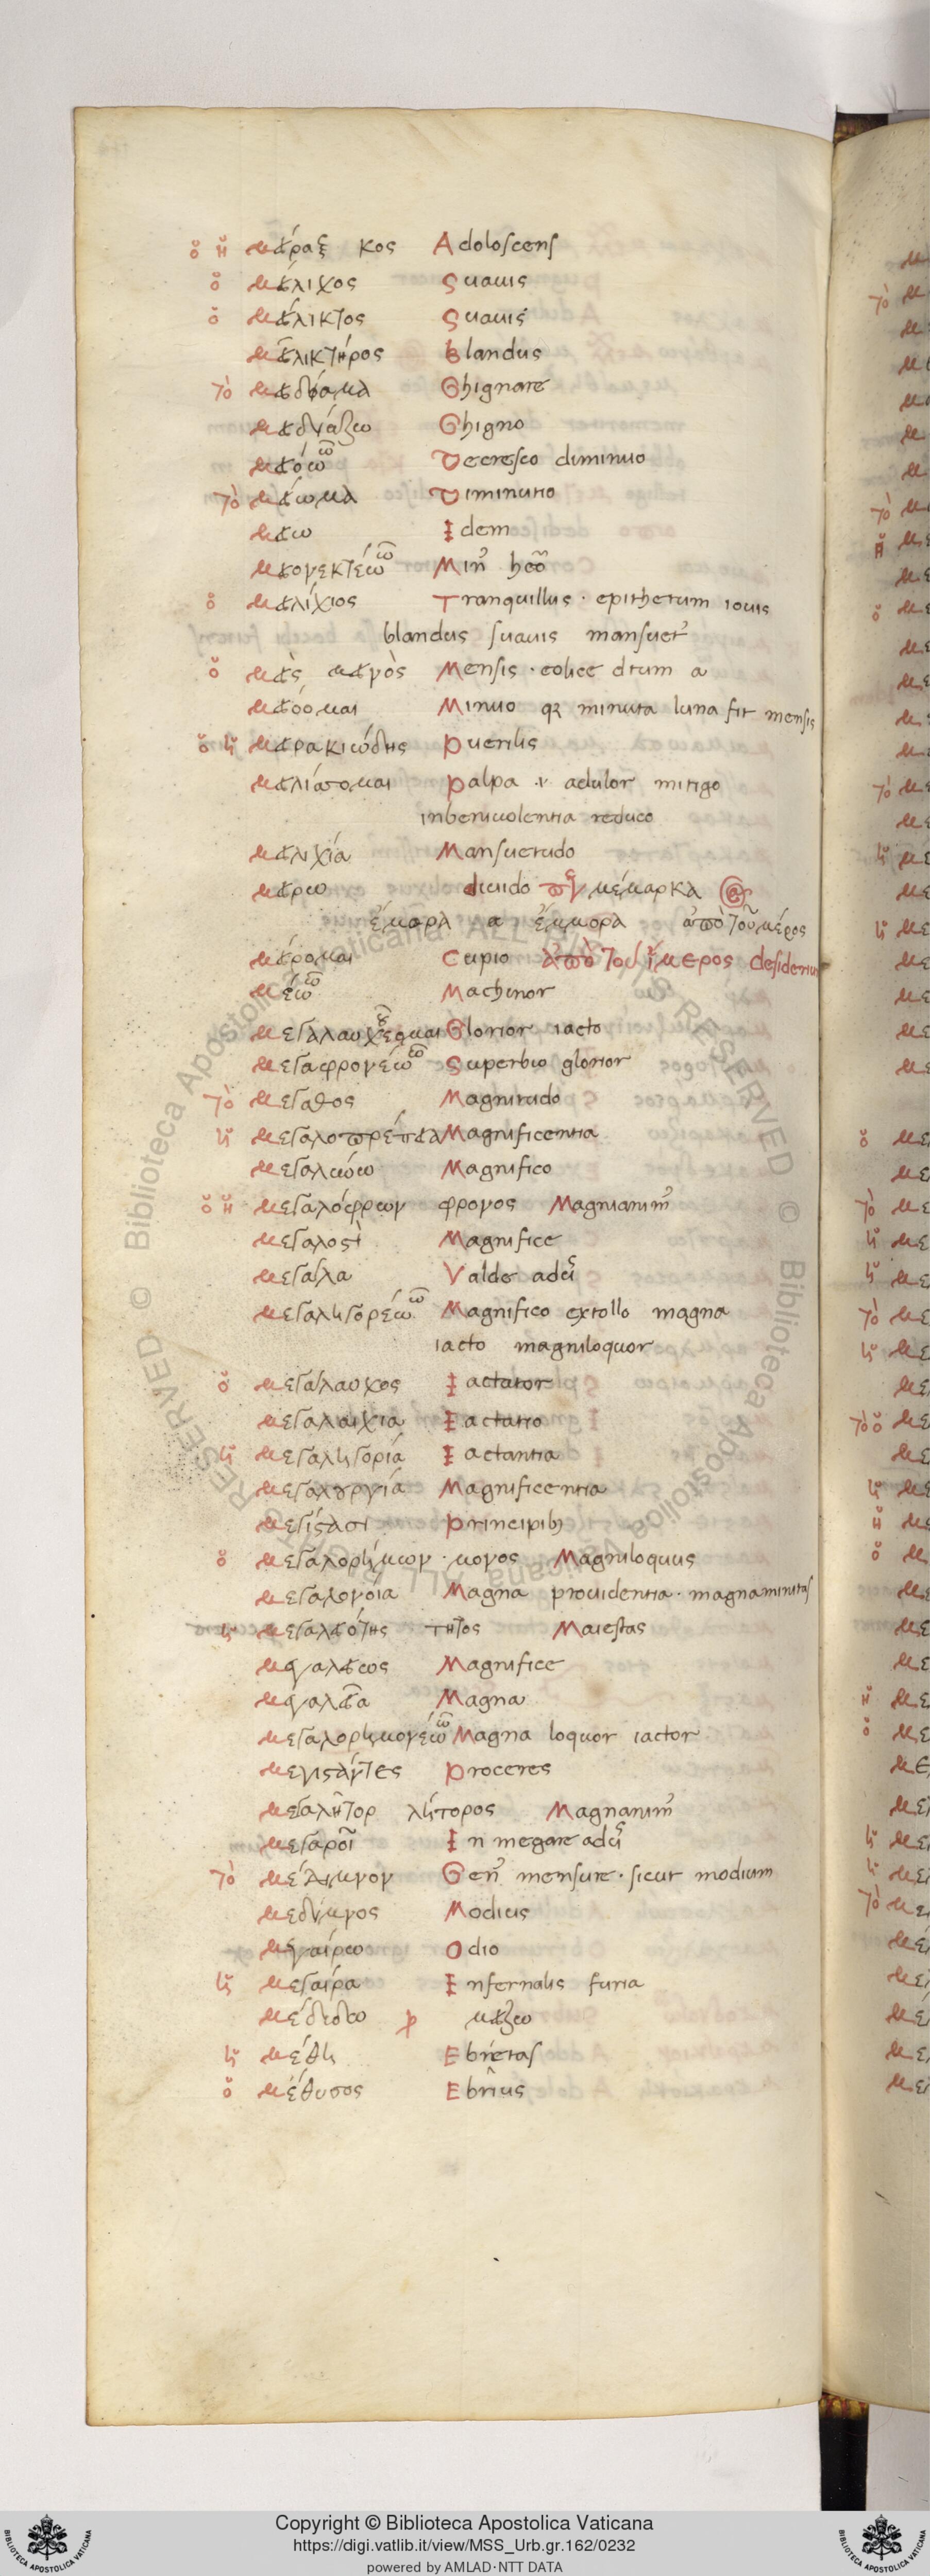 ὁ ἡ μείραξ κος Adolescens
ὁ μείλιχος Suauis
ὁ μείλικτος Suauis
μειλικτήρος Blandus
τὸ μειδίαμα Ghignare
μειδιάζω Ghigno
μειόω ῶ Decresco diminuo
τὸ μείωμα Diminutio
μείω Idem
μειονεκτέω ῶ
ὁ μειλίχιος Tranquillus · epithetum iouis
blandus suauis mansuet᾽
ὁ μεὶς μεινὸς Mensis · eolice dtum a
μειόομαι Minuo qz minuta luna fit mensis
ὁ ἡ μειρακιώδης Puerilis
μειλίσσομαι Palpa adulor mitigo
inbeniuolentia reduco
μειλιχία Mansuetudo
μείρω diuido μέμαρκα
ἔμμορα ἀπὸ τοῦ μέρος
μείρομαι Cupio ἀπὸ τοῦ ἵμερος desiderium
μέω ῶ Machinor
μεγαλαυχέομαι Glorior iacto
μεγαφρονέω ῶ Superbio glorior
τὸ μέγαθος Magnitudo
ἡ μεγαλοπρέπεια Magnificentia
μεγαλύνω Magnifico
ὁ ἡ μεγαλόφρων φρονος Magnianim᾽
μεγαλοστὶ Magnifice
μεγάλα Valde
μεγαληγορέω ῶ Magnifico extollo magna
iacto magniloquor
ὁ μεγάλαυχος Iactator
μεγαλαυχια Iactatio
ἡ μεγαληγορία Iactantia
μεγαλουργία Magnificentia
μεγίστασι
ὁ μεγαλορήμων · μονος Magniloquus
μεγαλονόια Magna prouidentia · magnaminitas
ἡ μεγαλειότης τητος Maiestas
μεγαλείως Magnifice
μεγαλεῖα Magna
μεγαλορημονέω ῶ Magna loquor iactor
μεγιστάντες Proceres
μεγαλῆτορ λήτορος Magnanim᾽
μεγαροῖ In megare
τὸ μέδιμνον Gen᾽ mensure · sicut modium
μεδίμνος Modius
μεγαίρω Odio
ἡ μεγαιρα Infernalis furia
ἡ μέθη Ebrietas
ὁ μέθυσος Ebrius
Copyright © Biblioteca Apostolica Vaticana
https://digi.vatlib.it/view/MSS_Urb.gr.162/0232
powered by AMLAD·NTT DATA